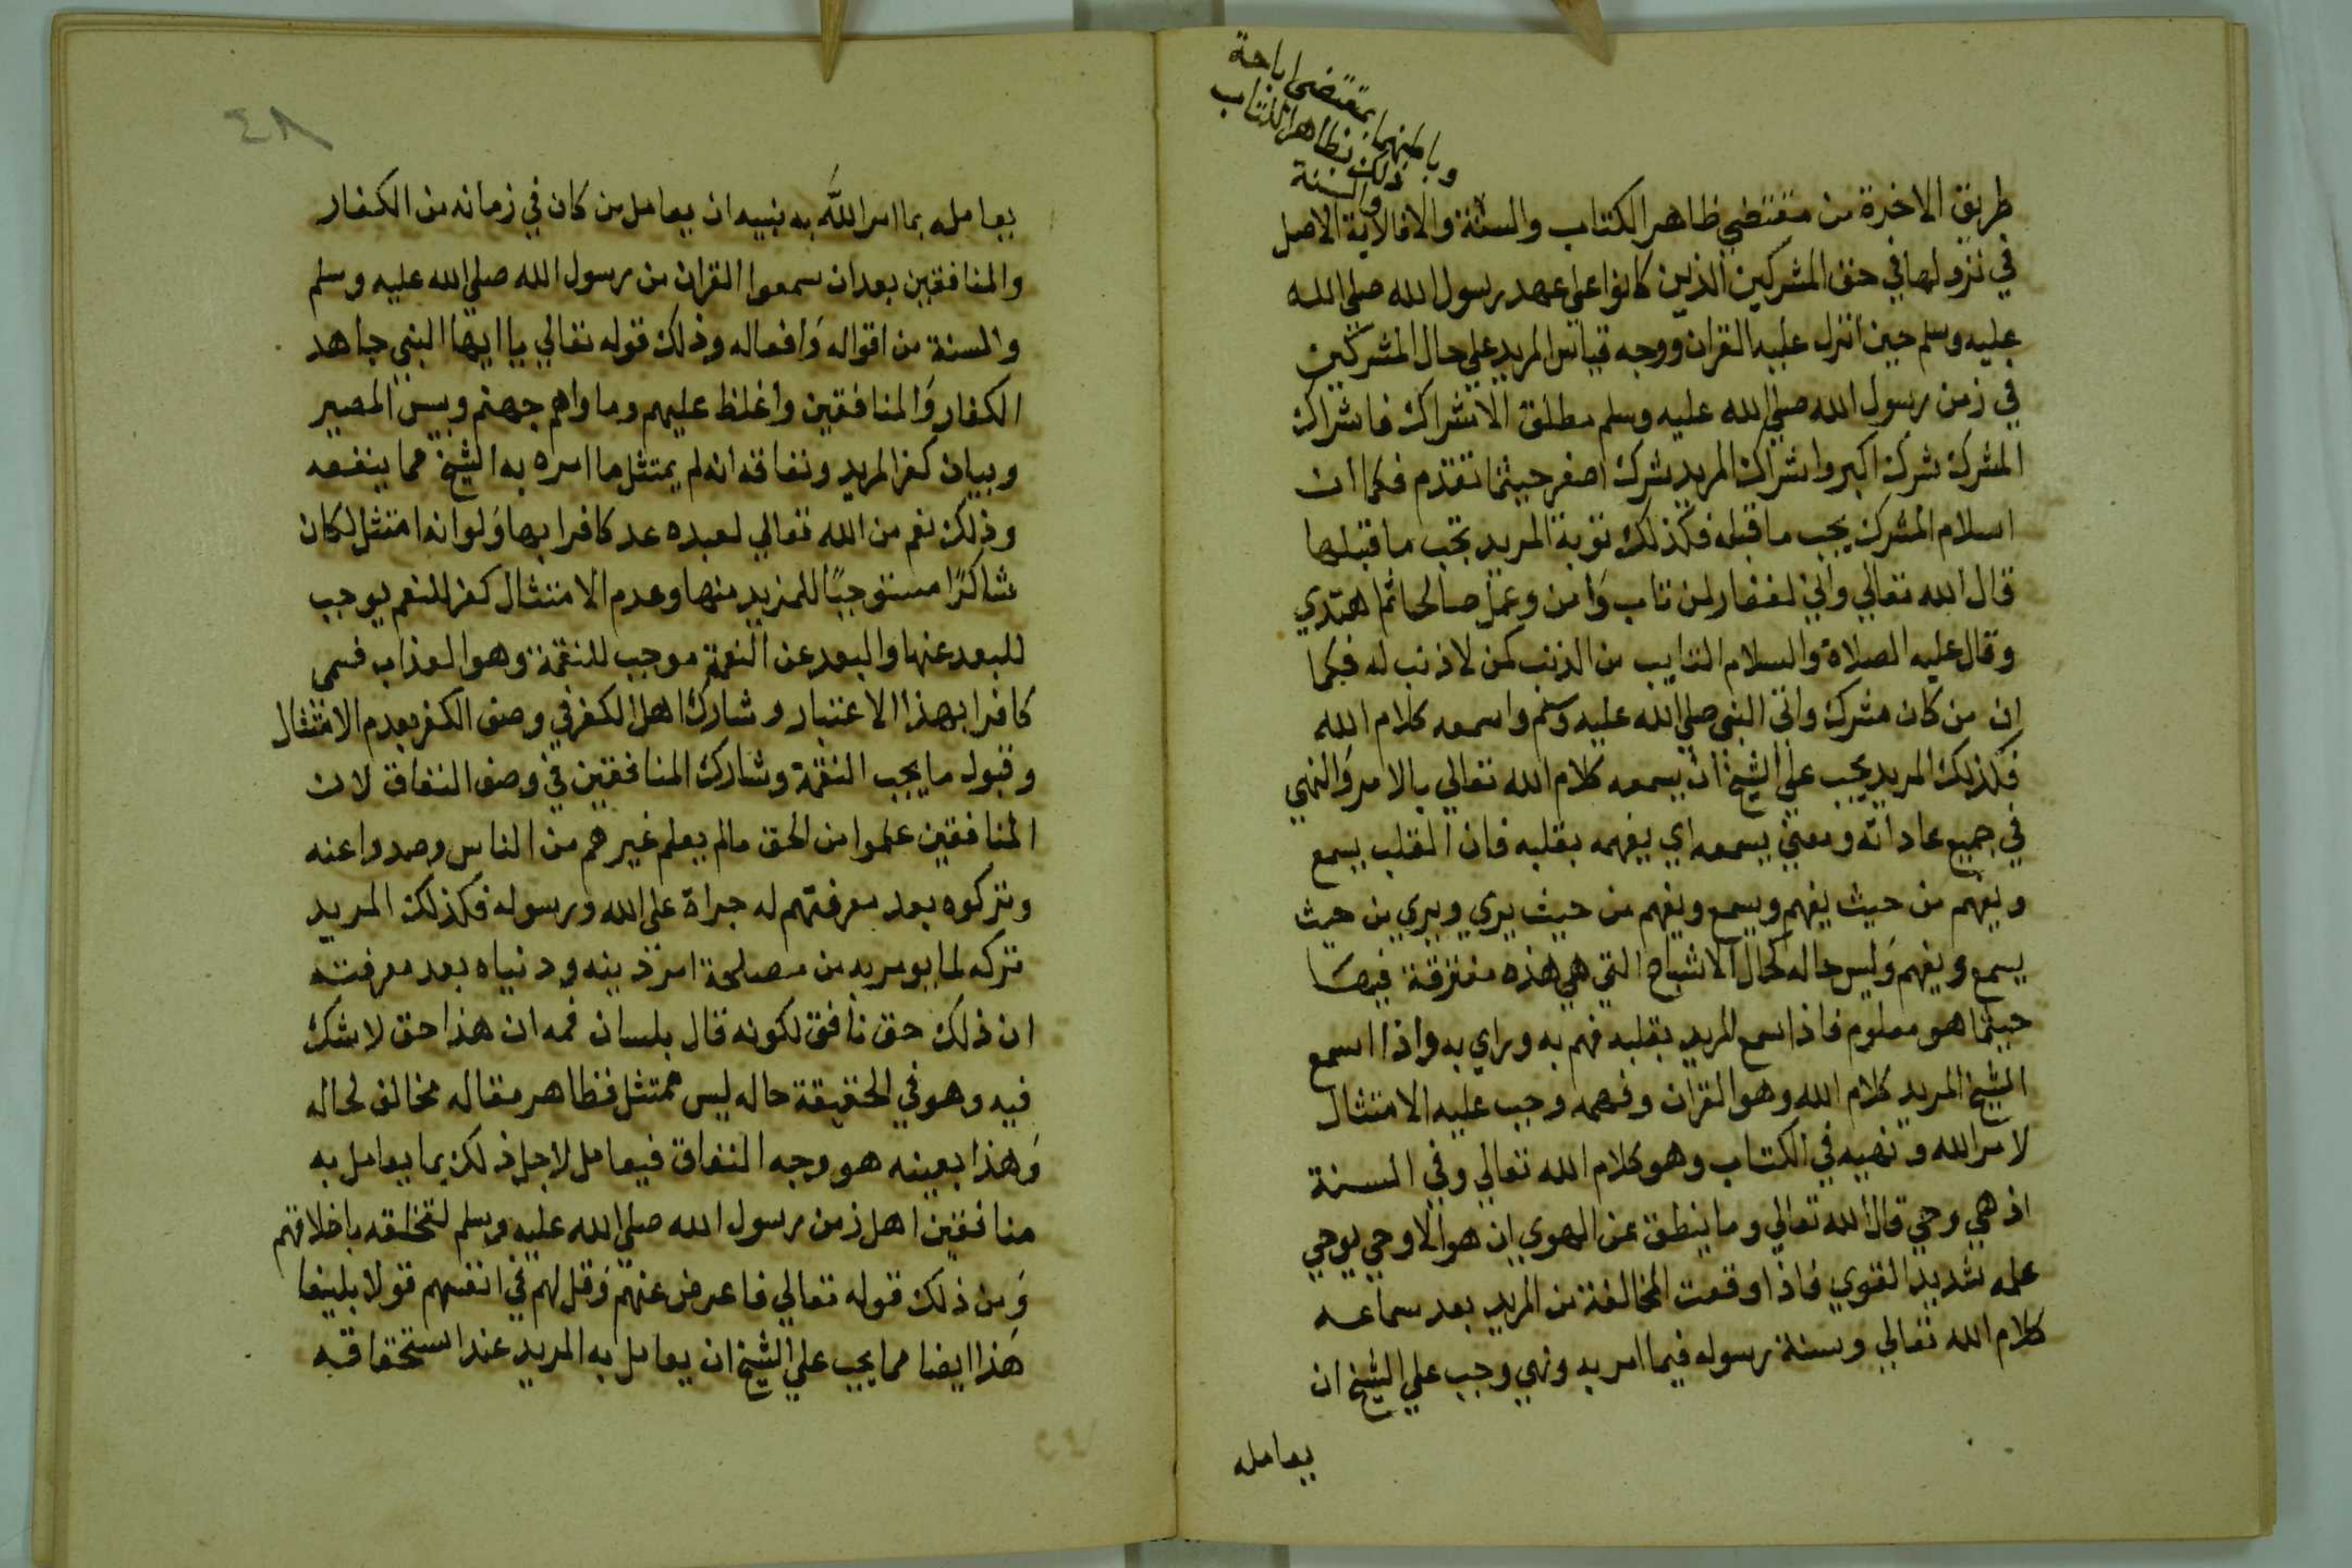 وباطنهما بمقتضى اباحة
ذلك بظاهر الكتاب
والسنة
طريق الاخرة من مقتضي ظاهر الكتاب والسنة والا فالاية الاصل
في نزولها في حق المشركين الذين كانوا علي عهد رسول الله صلي الله
عليه وسلم حين انزل عليه القران ووجه قياس المريد علي حال المشركين
في زمن رسول الله صلي الله عليه وسلم مطلق الاشراك فاشراك
المشرك شرك اكبر واشراك المريد شرك اصغر حيثما تقدم فكما ان
اسلام المشرك يجب ما قبله فكذلك توبة المريد تجب ما قبلها
قال الله تعالي واني لغفار لمن تاب وَامن وعمل صالحا ثم اهتدي
وقال عليه الصلاة والسلام التايب من الذنب كمن لا ذنب له فكما
ان من كان مشرك واتى النبي صلي الله عليه وسلم واسمعه كلام الله
فكذلك المريد يجب علي الشيخ ان يسمعه كلام الله تعالي بالامر وَالنهي
في جميع عاداته ومعني يسمعه اي يفهمه بقلبه فان القلب يسمع
ويفهم من حيث يفهم ويسمع ويفهم من حيث يري ويري من حيث
يسمع ويفهم وَليس حاله كحال الاشباح التي هي هذه مفترقة فيها
حيثما هو معلوم فاذا سمع المريد بقلبه فهم به وراي به واذا اسمع
الشيخ المريد كلام الله وهو القران وفهمه وجب عليه الامتثال
لامر الله ونهيه في الكتاب وهو كلام الله تعالي وفي السنة
اذ هي وحي قال الله تعالي وما ينطق عن الهوي ان هو الا وحي يوحي
علمه شديد القوي فاذا وقعت المخالفة من المريد بعد سماعه
كلام الله تعالي وسنة رسوله فيما امر به ونهي وجب علي الشيخ ان
يعامله
٤٨
يعامله بما امر الله به نبيه ان يعامل من كان في زمانه من الكفار
والمنافقين بعد ان سمعوا القران من رسول الله صلي الله عليه وسلم
والسنة من اقواله وَافعاله وذلك قوله تعالي يا ايها النبي جاهد
الكفار وَالمنافقين واغلظ عليهم وماواهم جهنم وبيس المصير
وبيان كفر المريد ونفاقه انه لم يمتثل ما امره به الشيخ مما ينفعه
وذلك نعم من الله تعالي لعبده عد كافرا بها وَلو انه امتثل لكان
شاكرًا مستوجبًا للمزيد منها وعدم الامتثال كفر للنعم يوجب
للبعد عنها والبعد عن النعمة موجب للنقمة وهو العذاب فسمى
كافرا بهذا الاعتبار وشارك اهل الكفر في وصف الكفر بعدم الامتثال
وقبول ما يجب النقمة وشارك المنافقين في وصف النفاق لان
المنافقين علموا من الحق مالم يعلم غيرهم من الناس وصدوا عنه
وتركوه بعد معرفتهم له جراة على الله ورسوله فكذلك المريد
تركه لما يومر به من مصلحة امر دينه ودنياه بعد معرفته
ان ذلك حق نافق لكونه قال بلسان فمه ان هذا حق لا شك
فيه وهو في الحقيقة حاله ليس ممتثل فظاهر مقاله مخالف لحاله
وَهذا بعينه هو وجه النفاق فيعامل لاجل ذلك بما يعامل به
منافقين اهل زمن رسول الله صلي الله عليه وسلم لتخلقه باخلاقهم
وَمن ذلك قوله تعالي فاعرض عنهم وَقل لهم في انفسهم قولا بليغا
هَذا ايضا مما يجب علي الشيخ ان يعامل به المريد عند استحقاقه